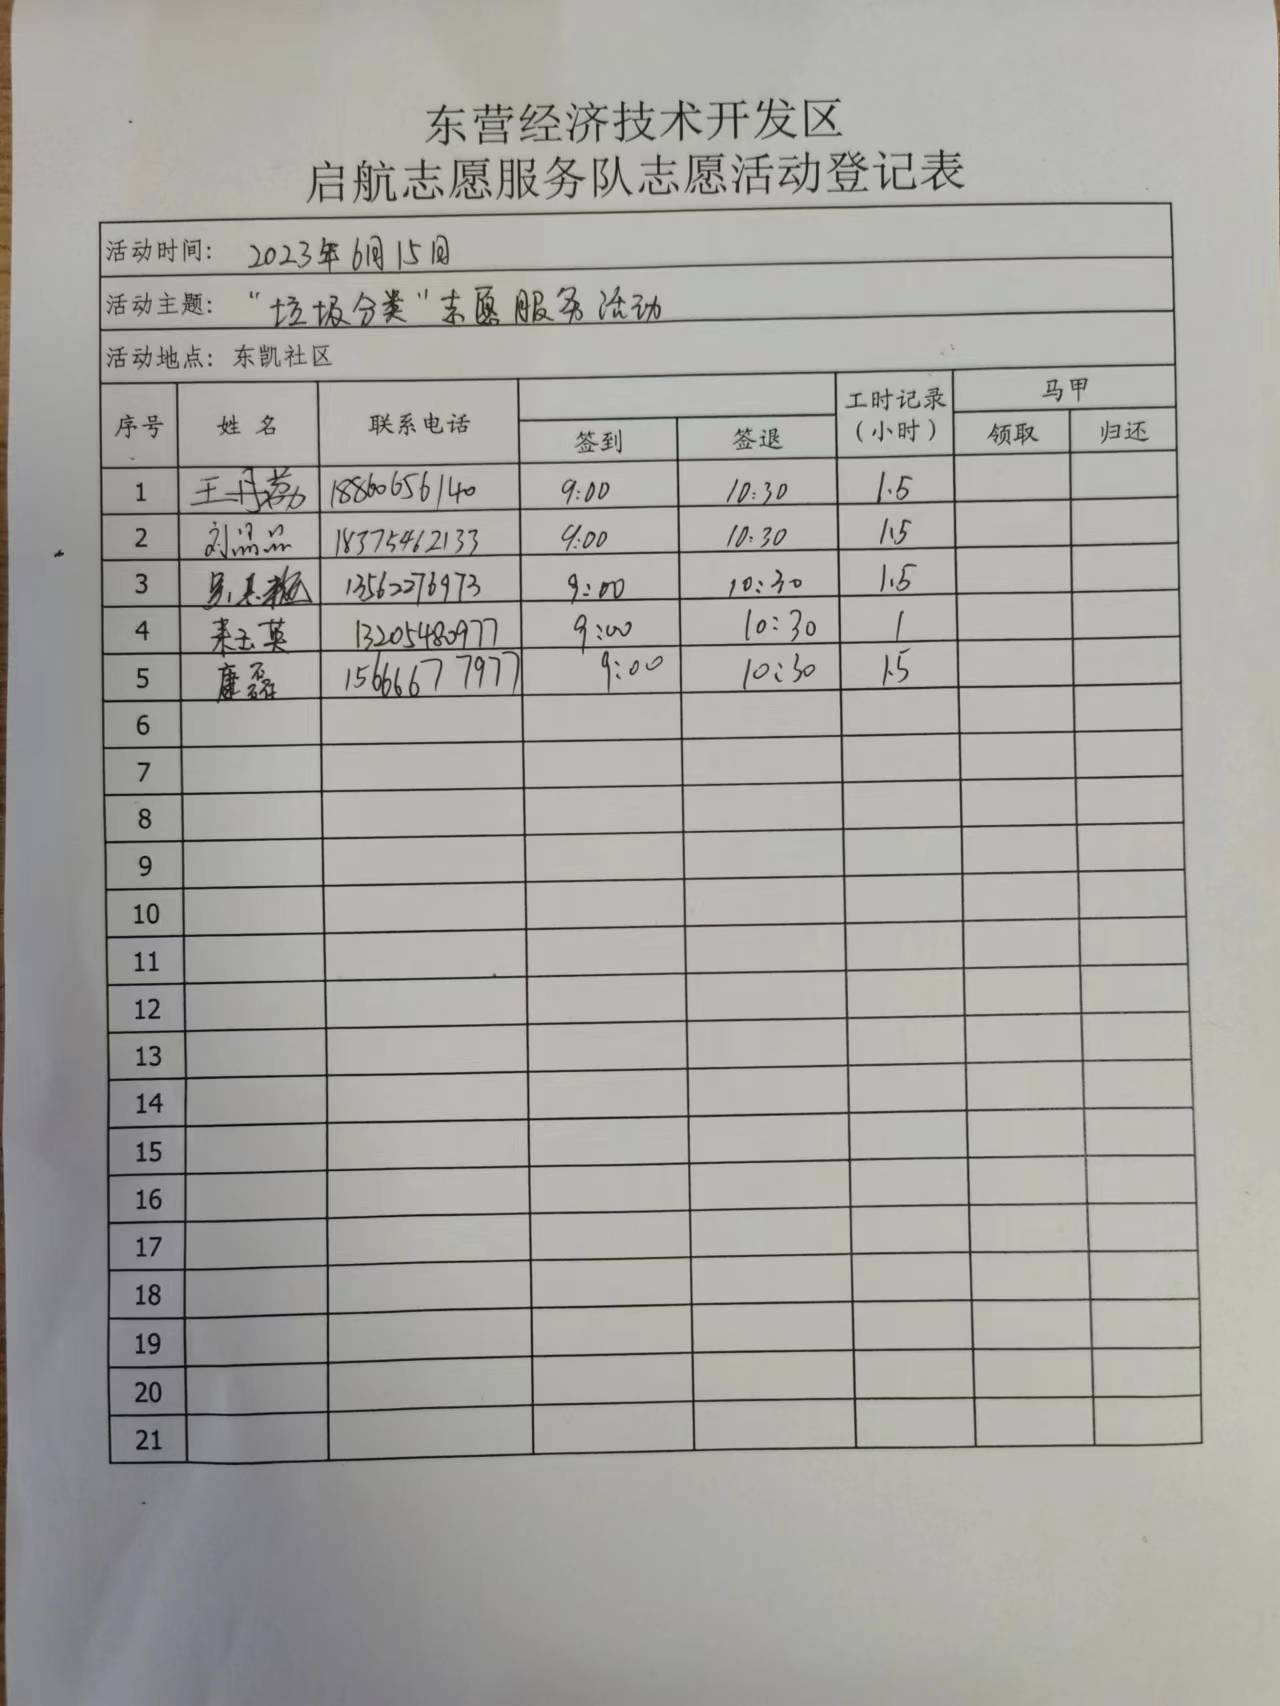 东营经济技术开发区
启航志愿服务队志愿活动登记表
活动时间: 2023年6月15日
活动主题: "垃圾分类"志愿服务活动
活动地点: 东凯社区
序号 姓名 联系电话 签到 签退 工时记录(小时) 马甲 领取 归还
1 王丹 18860656140 9:00 10:30 1.5
2 刘晶晶 18375462133 9:00 10:30 1.5
3 13562276973 9:00 10:30 1.5
4 玉英 13205480977 9:00 10:30 1
5 康磊 15666677977 9:00 10:30 1.5
6
7
8
9
10
11
12
13
14
15
16
17
18
19
20
21